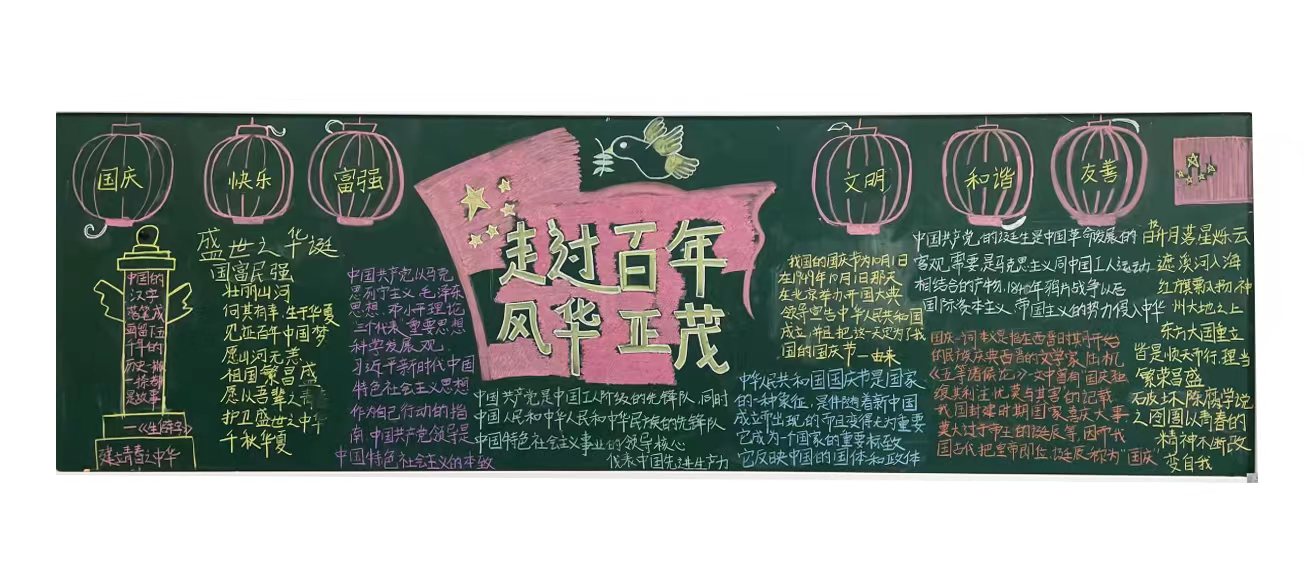 国庆
快乐
富强
文明
和谐
友善
走过百年
风华正茂
中国的
汉字
落笔成
画留下五
千年的
历史
是故事
建立青春之中华
盛世之华诞
国富民强
壮丽山河
何其有幸,生于华夏
见证百年中国梦
愿山河无恙
祖国繁昌盛
愿以吾辈之青春
护卫盛世之中华
千秋华夏
中国共产党以马克
思列宁主义毛泽东
思想、邓小平理论
三个代表重要思想
科学发展观
习近平新时代中国
特色社会主义思想
作为自己行动的指
南,中国共产党领导是
中国特色社会主义的本致
中国共产党是中国工人阶级的先锋队,同时
中国人民和中华人民和中华民族的先锋队
中国特色社会主义事业的领导核心
代表中国先进生产力
我国的国庆节为10月1日
在1949年10月1日那天
在北京举办开国大典
领导宣告中华人民共和国
成立,并且把这一天定为我
国的国庆节一由来
中华人民共和国国庆节是国家
的一种象征,是伴随着新中国
成立而出现的而且变得尤为重要
它成为一个国家的重要标致
它反映中国的国体和政体
中国共产党的诞生是中国革命发展的
客观需要是马克思主义同中国工人运动
相结合的产物.1840年鸦片战争以后
国际资本主义、帝国主义的势力侵入中华
国庆一词本义是指在西晋时期开始
的民族庆典西晋的文学家陆机
《五等诸侯论》一文中曾有国庆独
飨其利主忧莫与其害的记载
我国封建时期国家喜庆大事
莫大过于帝王的诞辰等,因而我
国古代把皇帝即位、诞辰称为"国庆"
月落星烁云
遮溪河入海
红旗飘动物神
州大地之上
东方大国重立
皆是顺天而行,理当
繁荣昌盛
破坏陈腐学说
之囹圄以青春的
精神不断改
变自我